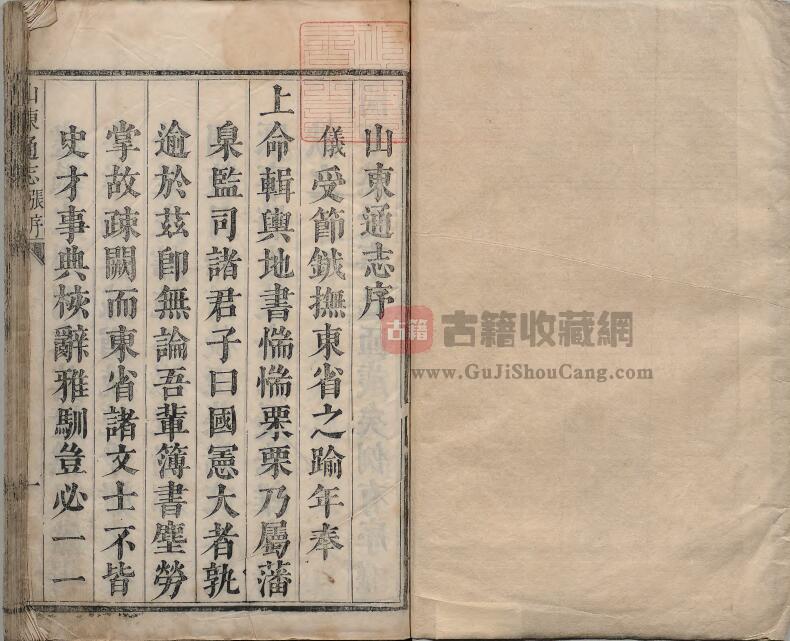 山東通志序
儀受節鉞撫東省之踰年奉
上命輯輿地書惴惴栗栗乃屬藩
臬監司諸君子曰國憲大者孰
逾於茲卽無論吾輩簿書塵勞
掌故疎闕而東省諸文士不皆
史才事典核辭雅馴豈必一一
山東通志 張序 一
古籍 古籍收藏網
www.GuJiShouCang.com